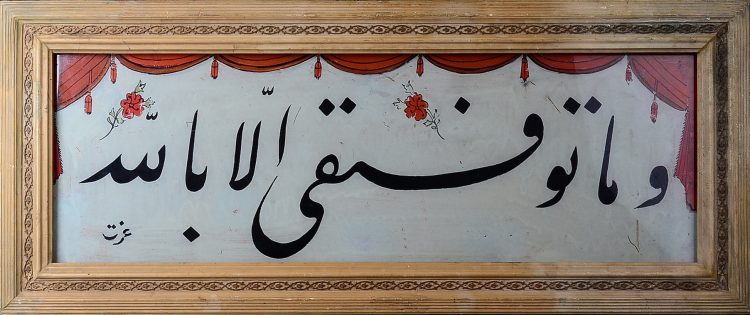 وما توفيقى الّا بالله
عزت